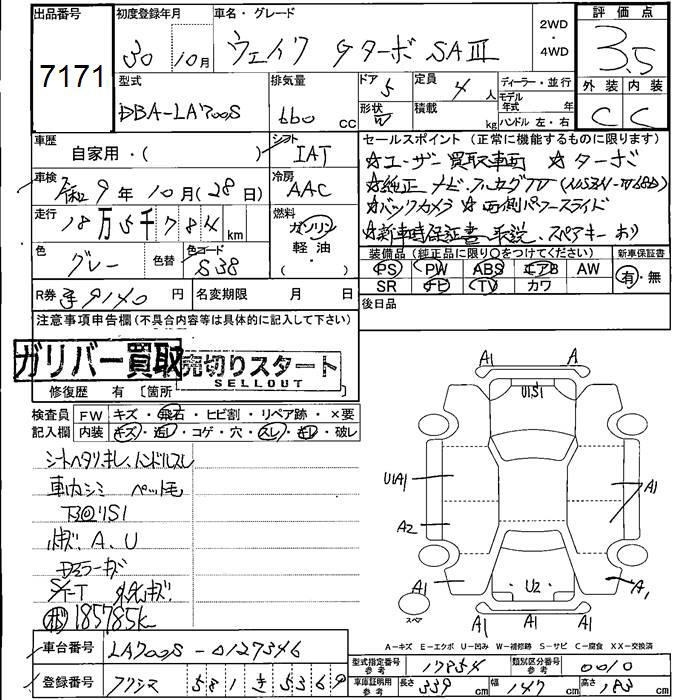 出品番号 初度登録年月 車名・グレード 2WD・4WD 評価点
7171 30年10月 ウェイク GターボSAⅢ 3.5
型式 排気量 ドア 5 定員 4人 ディーラー・並行 外装 内装
DBA-LA700S 660cc 形状 積載 kg モデル年式 年 ハンドル 左・右 C C
車歴 自家用・( ) シフト IAT
セールスポイント (正常に機能するものに限ります)
☆ユーザー買取車両 ☆ターボ
車検 令和9年10月(28日) 冷房 AAC
☆純正ナビ、フルセグTV
走行 18万5千784km 燃料 ガソリン 軽油・( )
☆バックカメラ ☆両側パワースライド
☆新車時保証書、取説、スペアキーあり
色 グレー 色替 色コード S38
装備品 (純正品に限り○をつけてください) 新車保証書
PS PW ABS エアB AW 有・無
SR ナビ TV カワ
R券 9140円 名変期限 月 日 後日品
注意事項申告欄(不具合内容等は具体的に記入して下さい)
ガリバー買取 売切りスタート
SELLOUT
修復歴 有 [箇所 ]
検査員 FW キズ・飛石・ヒビ割・リペア跡・×要
記入欄 内装 キズ・汚レ・コゲ・穴・スレ・キレ・破レ
シートヘタリ、キレ、ハンドルスレ
車内シミ ペット毛
下回リS1
小キズ A、U
ドアミラーキズ
185785k
A1 A
U1S1
U1A1 A1
A2
A1 U2 A1
A1 A1 A1
スペア
A-キズ E-エクボ U-凹み W-補修跡 S-サビ C-腐食 XX-交換済
車台番号 LA700S-0127346
型式指定番号 参考 17854 類別区分番号 参考 0010
登録番号 581 き 5369
車庫証明用 参考 長さ 339cm 幅 147cm 高さ 183cm